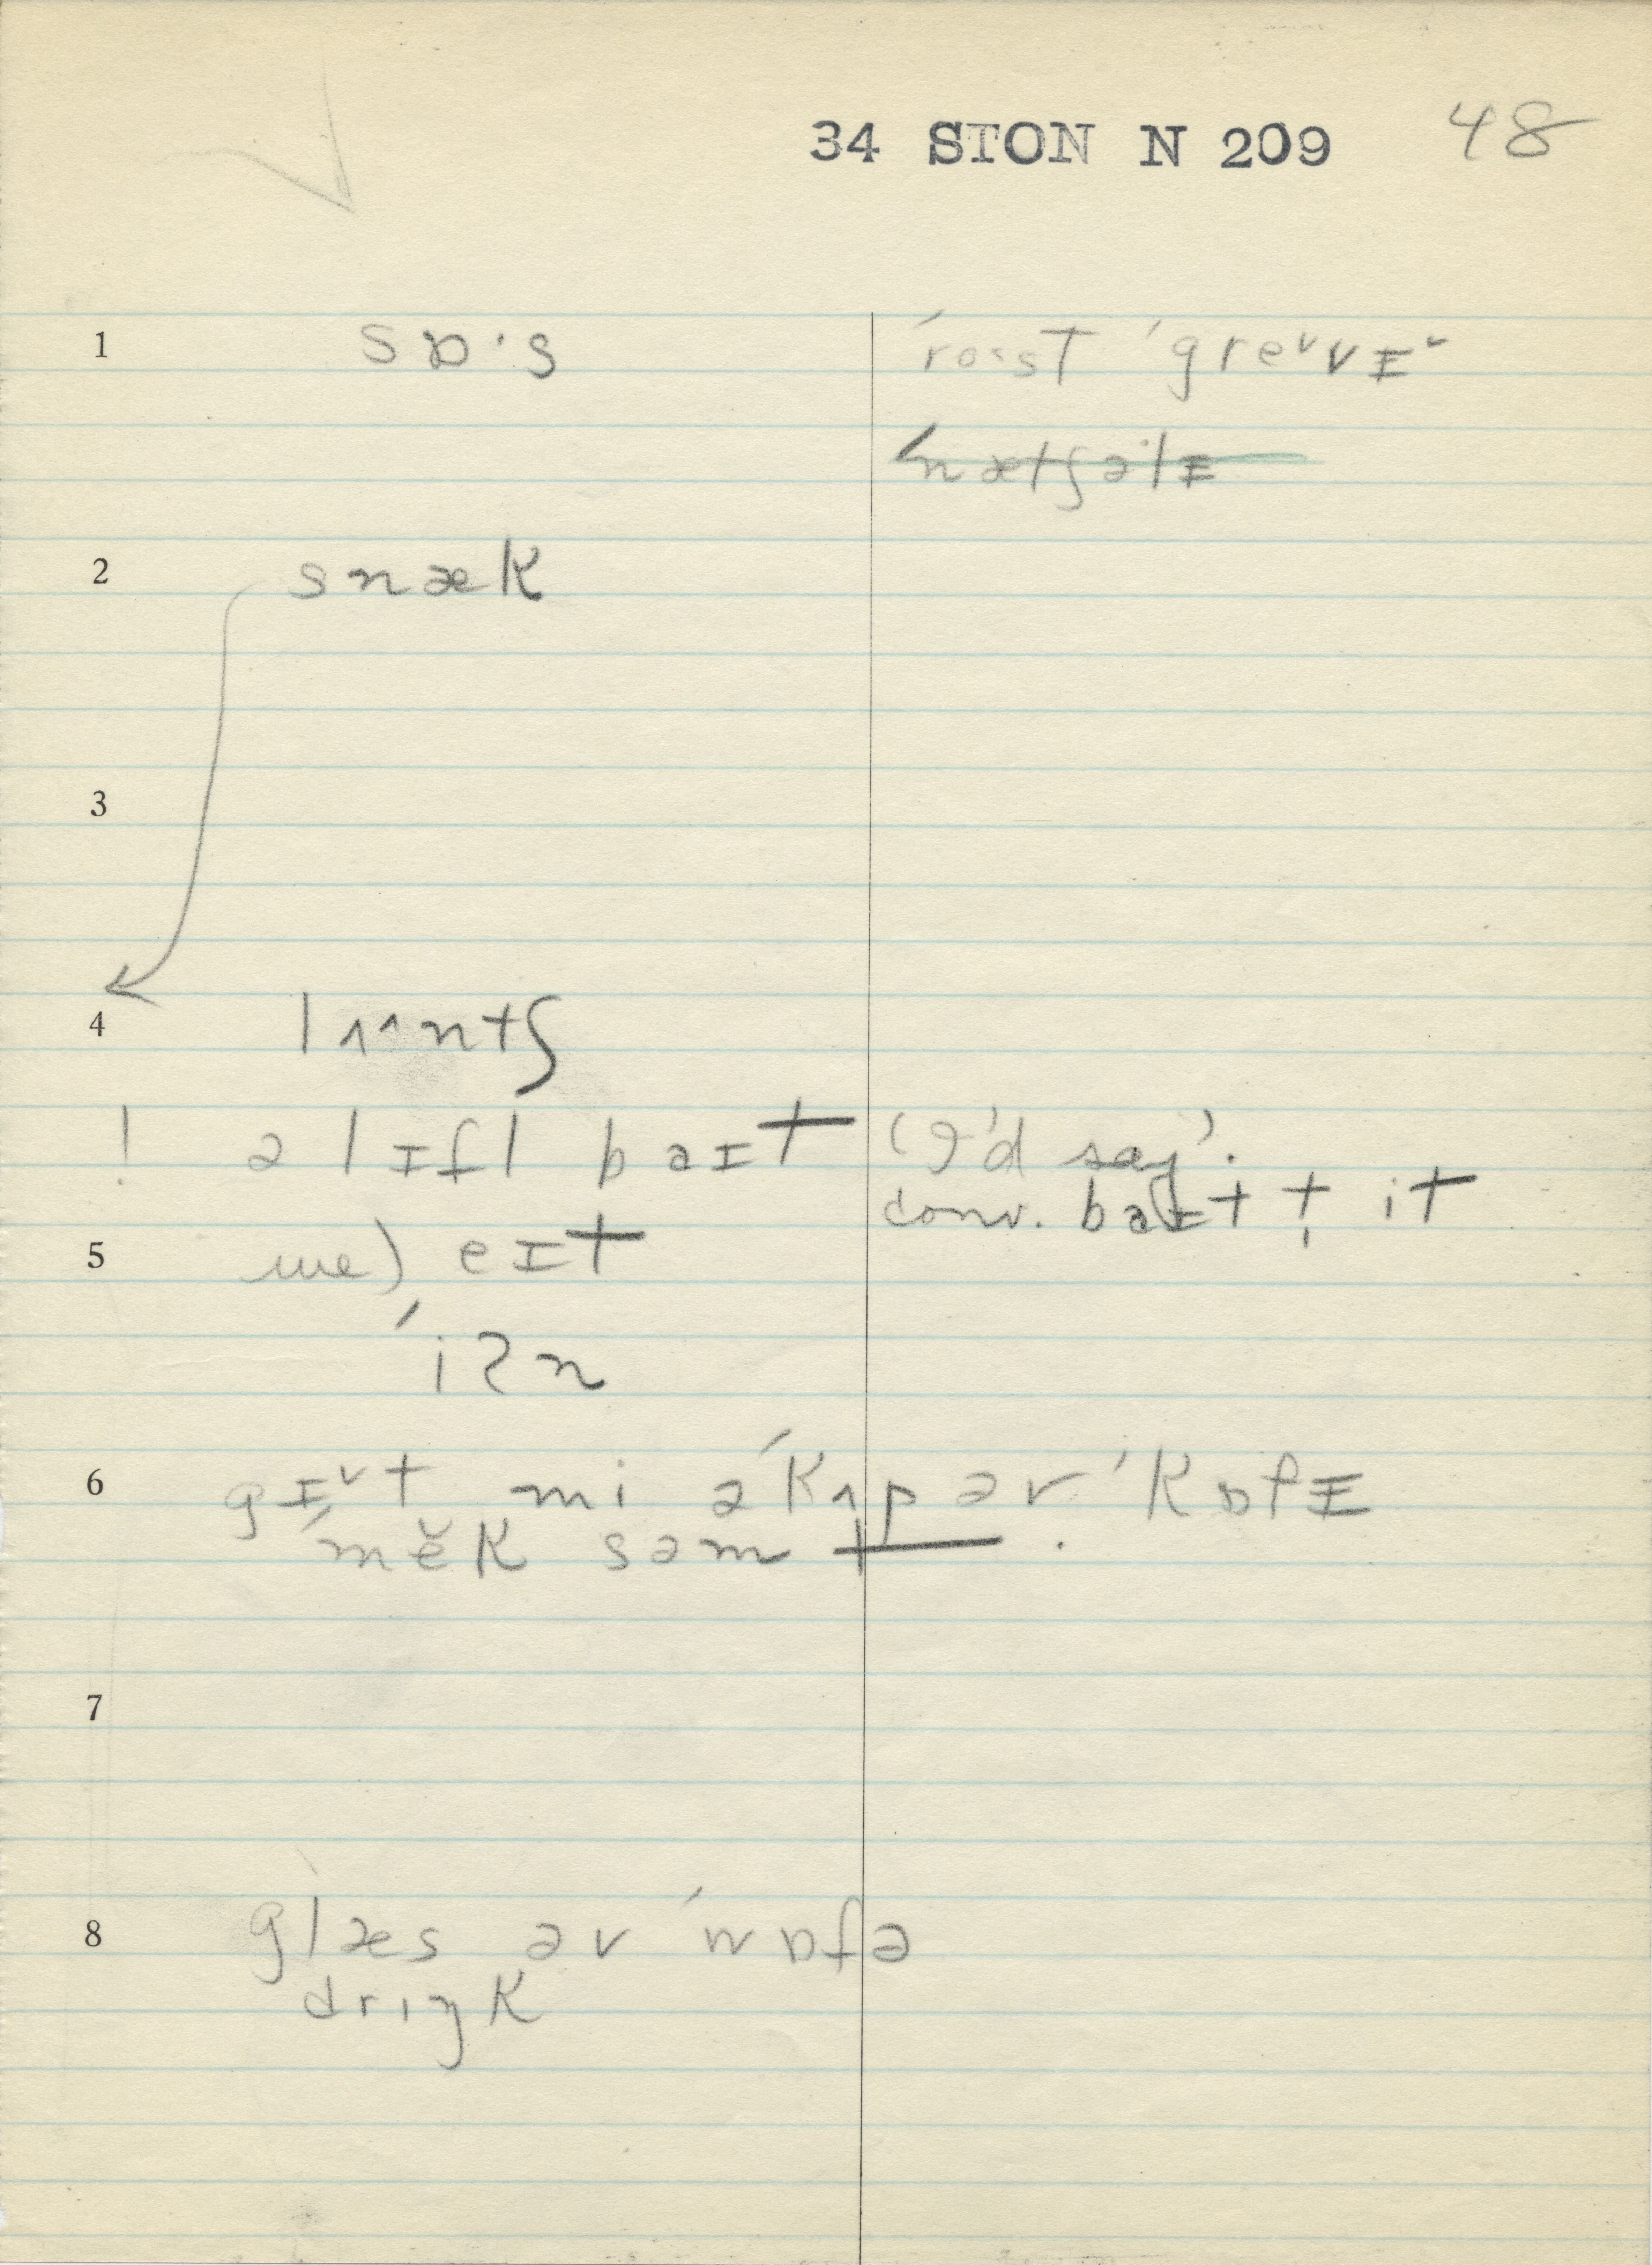 34 STON N 209 48
1 sɒ·s ˈro·sT ˈgreᵛvɪᵛ
ˈnætʃəlɪ
2 snæk
3
4 lʌ^ntʃ
! ə lɪfl baɪt ('I'd say'.
conv. baɪt t̩ it
5 we) eɪt
ˈiʔn
6 gɪᵛt mi əˈkʌp əv ˈkɒfɪ
ˈmĕk səm t.
7
8 glæs əv ˈwɒfə
drɪŋk